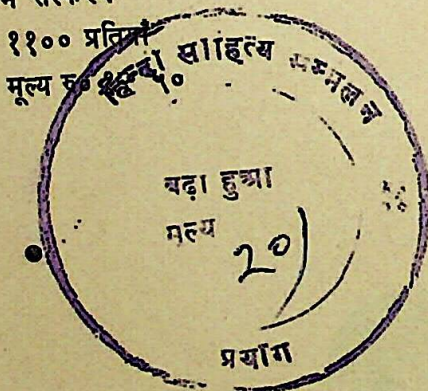 संस्करण
११०० प्रतियाँ
मूल्य रु०
हिन्दी साहित्य सम्मेलन
बढ़ा हुआ
मूल्य
20)
प्रयाग